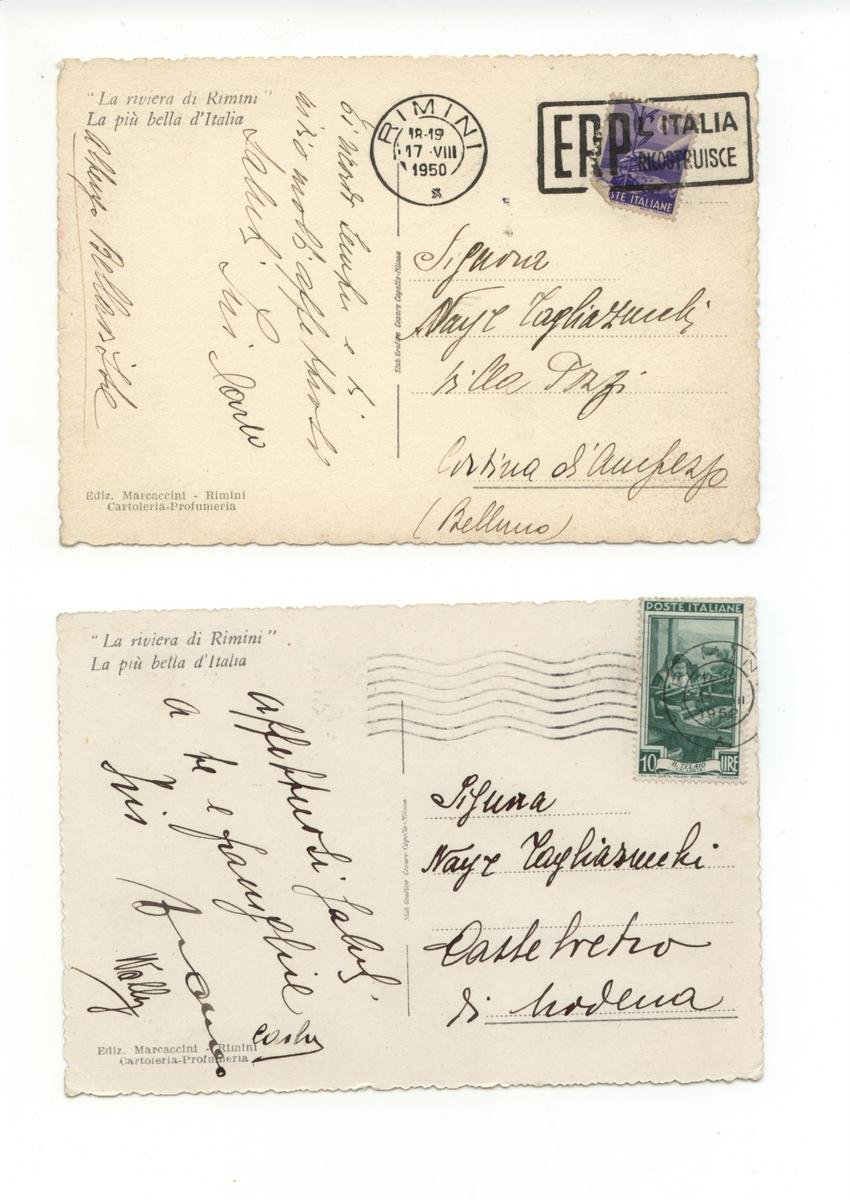 "La riviera di Rimini"
La più bella d'Italia
RIMINI
18-19
17·VIII
1950
ERP L'ITALIA
RICOSTRUISCE
POSTE ITALIANE
Ti ricordo sempre e ti
invio molti affettuosi
saluti
Carlo
Signora
Tagliazucchi
Villa Pozzi
Cortina d'Ampezzo
(Belluno)
Stab. Grafico Cesare Capello-Milano
Ediz. Marcaccini - Rimini
Cartoleria-Profumeria
"La riviera di Rimini"
La più bella d'Italia
POSTE ITALIANE
1952
10 LIRE
IL TELAIO
affettuosi saluti
a te e famiglia
Wally
Signora
Tagliazucchi
Castelvetro
di Modena
Stab. Grafico Cesare Capello-Milano
Ediz. Marcaccini - Rimini
Cartoleria-Profumeria